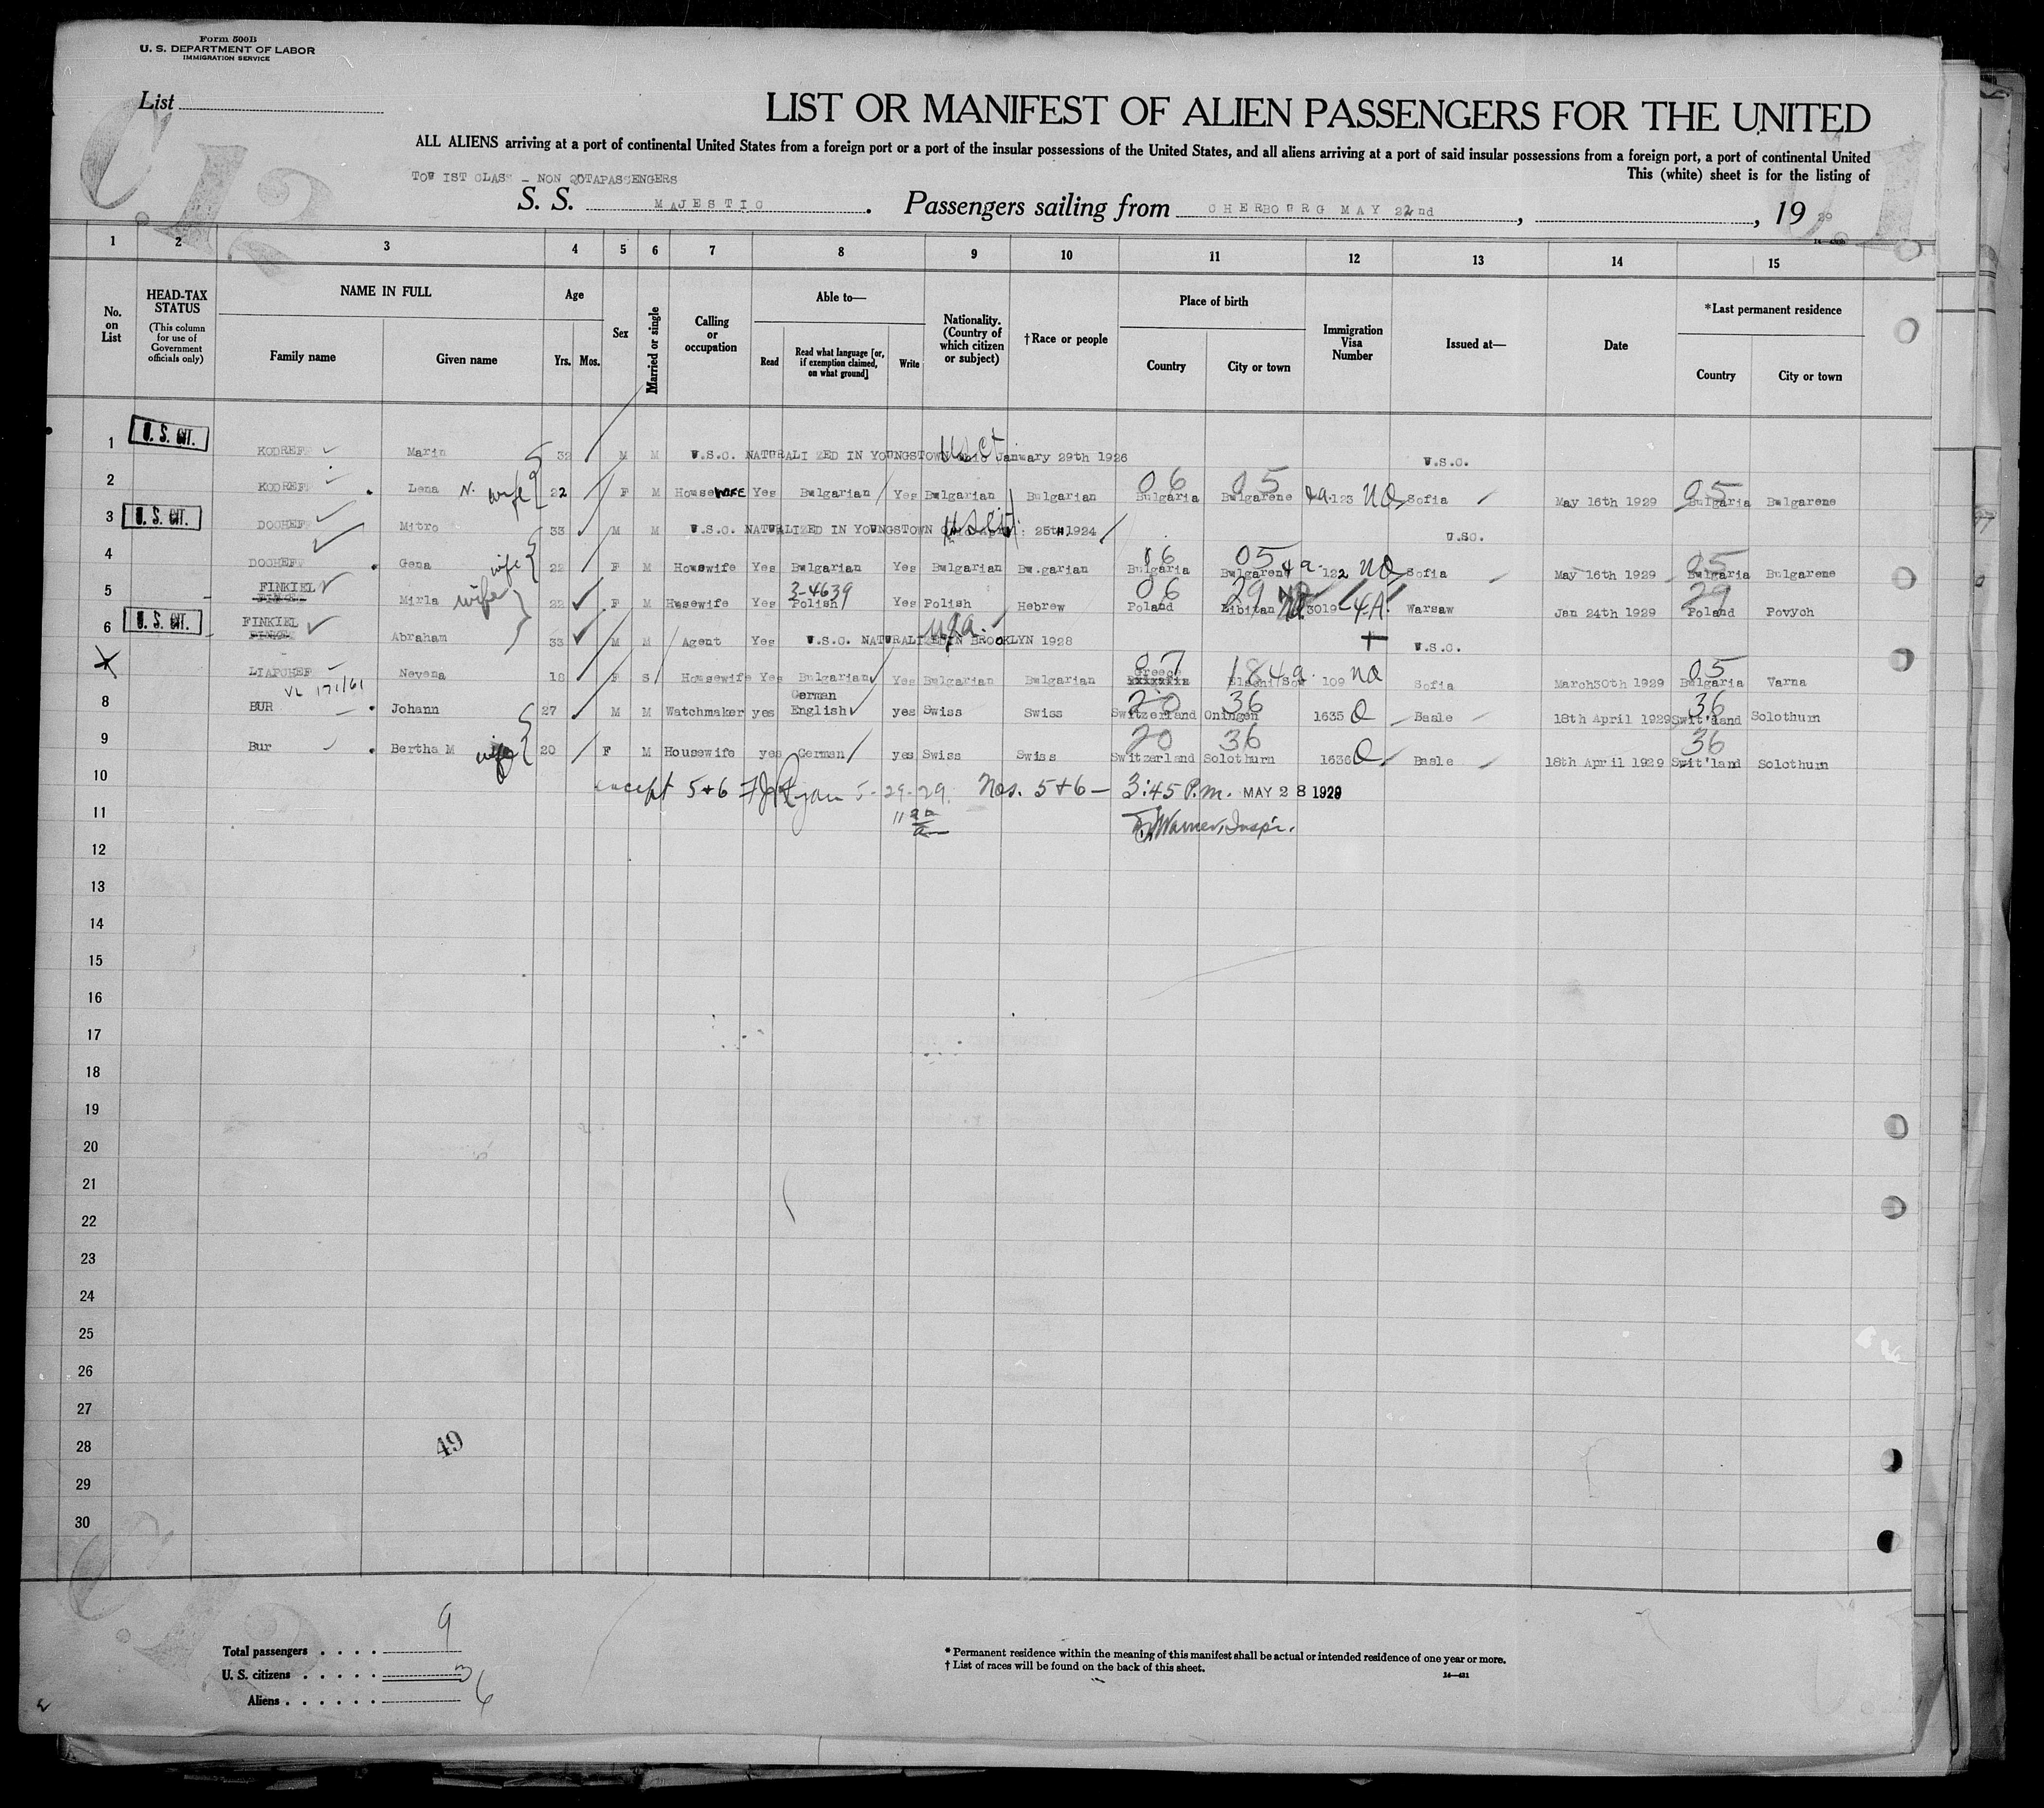 Form 500B
U. S. DEPARTMENT OF LABOR
IMMIGRATION SERVICE
List
LIST OR MANIFEST OF ALIEN PASSENGERS FOR THE UNITED
ALL ALIENS arriving at a port of continental United States from a foreign port or a port of the insular possessions of the United States, and all aliens arriving at a port of said insular possessions from a foreign port, a port of continental United
This (white) sheet is for the listing of
TOU IST CLASS - NON QOTAPASSENGERS
S. S. MAJESTIC. Passengers sailing from CHERBOURG MAY 22nd, , 19 29
1 2 3 4 5 6 7 8 9 10 11 12 13 14 15
No. on List
HEAD-TAX STATUS
(This column for use of Government officials only)
NAME IN FULL
Family name Given name
Age
Yrs. Mos.
Sex
Married or single
Calling or occupation
Able to—
Read Read what language [or, if exemption claimed, on what ground] Write
Nationality. (Country of which citizen or subject)
†Race or people
Place of birth
Country City or town
Immigration Visa Number
Issued at—
Date
*Last permanent residence
Country City or town
1 U. S. CIT. KODREFF Marin 32 M M U.S.C. NATURALI ZED IN YOUNGSTOWN Ohio January 29th 1926 U.S.C.
2 KODREFF Lena N. wife 22 F M HouseWIFE Yes Bulgarian Yes Bulgarian Bulgarian 06 Bulgaria 05 Bulgarene 4a. 123 NQ Sofia May 16th 1929 05 Bulgaria Bulgarene
3 U. S. CIT. DOCHEFF Mitro 33 M M U.S.C. NATURALIZED IN YOUNGSTOWN 25th 1924 U.SC.
4 DOCHEFF Gena wife 22 F M Housewife Yes Bulgarian Yes Bulgarian Bu.garian 06 Bulgaria 05 Bulgarene 4a. 122 NQ Sofia May 16th 1929 05 Bulgaria Bulgarene
5 FINKIEL FINKEL Mirla wife 22 F M Husewife Yes 3-4639 Polish Yes Polish Hebrew 06 Poland 29 Libitan 3019 4A. Warsaw Jan 24th 1929 29 Poland Povych
6 U. S. CIT. FINKIEL FINKEL Abraham 33 M M Agent Yes U.S.C. NATURALIZED IN BROOKLYN 1928 U.S.C.
LIAPCHEF Nevena 18 F S Housewife Yes Bulgarian Yes Bulgarian Bulgarian 07 Greece 18 4a. 109 NQ Sofia March30th 1929 05 Bulgaria Varna
VL 171/61
8 BUR Johann 27 M M Watchmaker yes German English yes Swiss Swiss 20 Switzerland 36 Oningen 1635 Q Basle 18th April 1929 36 Swit'land Solothurn
9 Bur Bertha M wife 20 F M Housewife yes German yes Swiss Swiss 20 Switzerland 36 Solothurn 1636 Q Basle 18th April 1929 36 Swit'land Solothurn
10 except 5+6 Ryan 5-29-29. Nos. 5+6 — 3:45 P.m. MAY 28 1929
11 Warner, Inspr.
12
13
14
15
16
17
18
19
20
21
22
23
24
25
26
27
28 49
29
30
Total passengers . . . . 9
U. S. citizens . . . . . 3
Aliens . . . . . . 6
* Permanent residence within the meaning of this manifest shall be actual or intended residence of one year or more.
† List of races will be found on the back of this sheet.
14—421